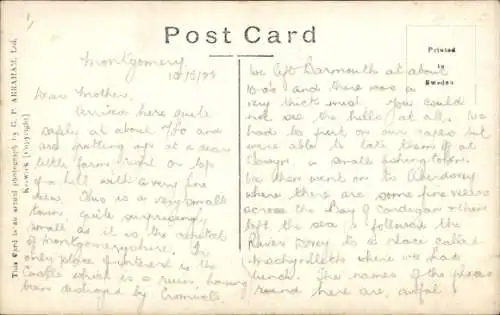 Post Card
Printed
in
Sweden
This Card is an actual photograph by G. P. ABRAHAM, Ltd.
Keswick [Copyright]
Montgomery
Dear Mother,
Arrived here quite
safely at about 7.00 and
are putting up at a dear
little farm right on top
of a hill with a very fine
view. This is a very small
town, quite surprisingly
small as it is the capital
of Montgomeryshire. Its
only place of interest is the
Castle which is a ruin, having
been destroyed by Cromwell.
We left Barmouth at about
10.0 and there was a
very thick mist. You could
not see the hills at all. We
had to put on our capes but
were able to take them off at
a small fishing town.
We then went on to Aberdovey
where there are some fine views
across the Bay of Cardigan & then
left the sea & followed the
River Dovey to a place called
Machynlleth where we had
lunch. The names of the places
round here are awful!